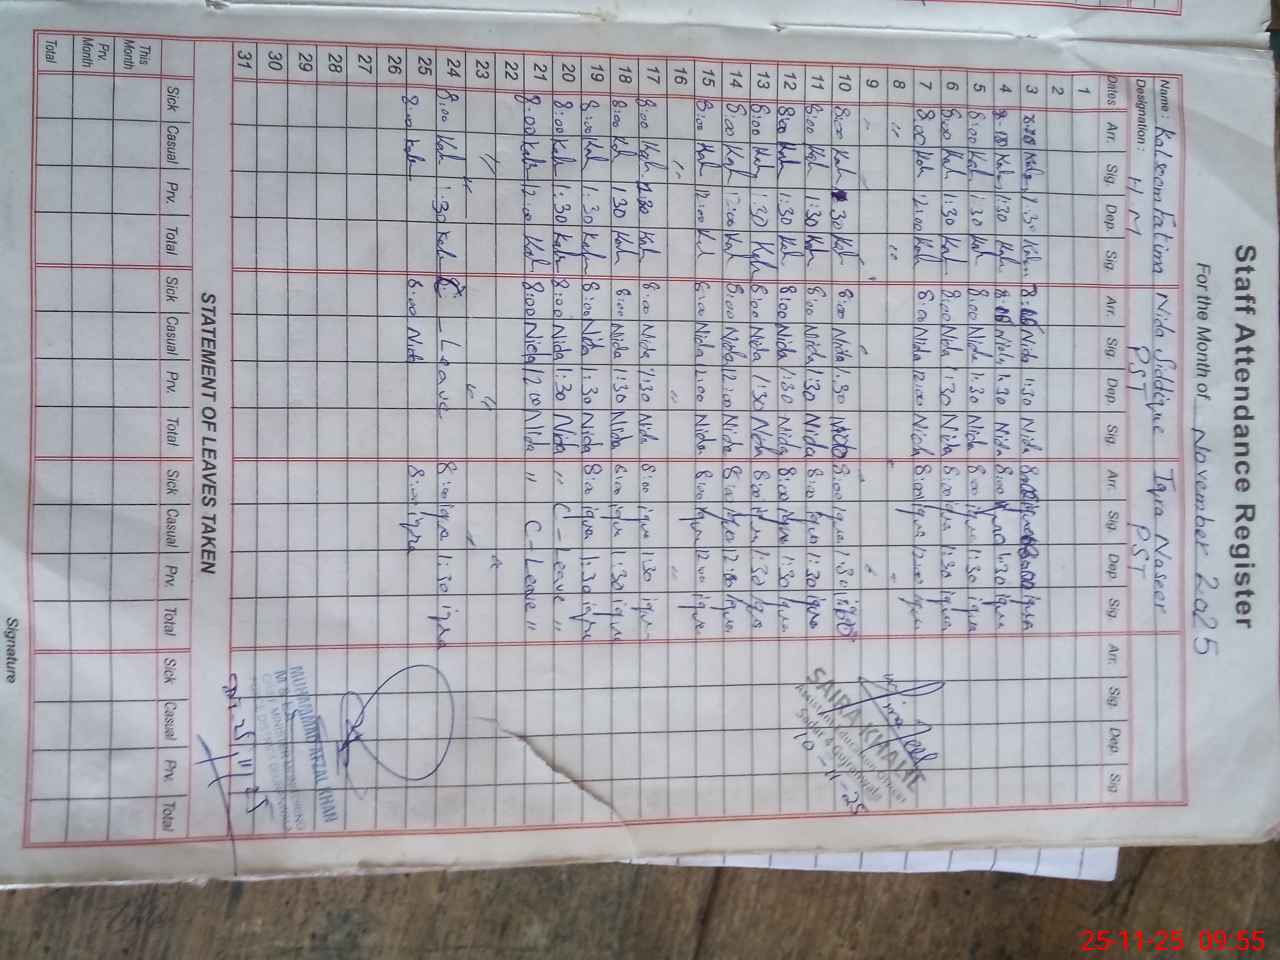 Staff Attendance Register
For the Month of November 2025
Name: Kaleem Fatima Nida Siddique Iqra Naseer
Designation: H M PST PST
Dates Arr. Sig. Dep. Sig. Arr. Sig. Dep. Sig. Arr. Sig. Dep. Sig. Arr. Sig. Dep. Sig.
1
2
3 1:30 Nida 1:30 Nida
4 1:30 Nida 1:30 Nida 8:00 1:30 iqra
5 8:00 Kal 1:30 Kal 8:00 Nida 1:30 Nida 8:00 iqra 1:30 iqra
6 8:00 Kal 1:30 Kal 8:00 Nida 1:30 Nida 8:00 iqra 1:30 iqra
7 8:00 Kal 12:00 Kal 8:00 Nida 12:00 Nida 8:00 iqra 12:00 iqra
8 "
9
10 8:00 Kal 30 Kal 8:00 Nida 1:30 8:00 iqra 1:30
11 8:00 Kal 1:30 Kal 8:00 Nida 1:30 Nida 8:00 iqra 1:30 iqra
12 8:00 Kal 1:30 Kal 8:00 Nida 1:30 Nida 8:00 iqra 1:30 iqra
13 8:00 Kal 1:30 Kal 8:00 Nida 1:30 Nida 8:00 iqra 1:30 iqra
14 8:00 Kal 12:00 Kal 8:00 Nida 12:00 Nida 8:00 iqra 12:00 iqra
15 8:00 Kal 12:00 Kal 8:00 Nida 12:00 Nida 8:00 iqra 12:00 iqra
16 " " "
17 8:00 Kal Kal 8:00 Nida 1:30 Nida 8:00 iqra 1:30 iqra
18 8:00 Kal 1:30 Kal 8:00 Nida 1:30 Nida 8:00 iqra 1:30 iqra
19 8:00 Kal 1:30 Kal 8:00 Nida 1:30 Nida 8:00 iqra 1:30 iqra
20 8:00 Kal 1:30 Kal 8:00 Nida 1:30 Nida " C-Leave "
21 8:00 Kal 12:00 Kal 8:00 Nida 12:00 Nida " C-Leave "
22
23 " "
24 8:00 Kal 1:30 Kal - Leave 8:00 iqra 1:30 iqra
25 8:00 Kal 8:00 Nida 8:00 iqra
26
27
28
29
30
31
SAIRA KHALIL
Assistant Education Officer
Sadar 4 Gujranwala
10-11-25
MUHAMMAD AFZAL KHAN
25/11/25
STATEMENT OF LEAVES TAKEN
Sick Casual Prv. Total Sick Casual Prv. Total Sick Casual Prv. Total Sick Casual Prv. Total
This Month
Prv. Month
Total
Signature
25-11-25 09:55